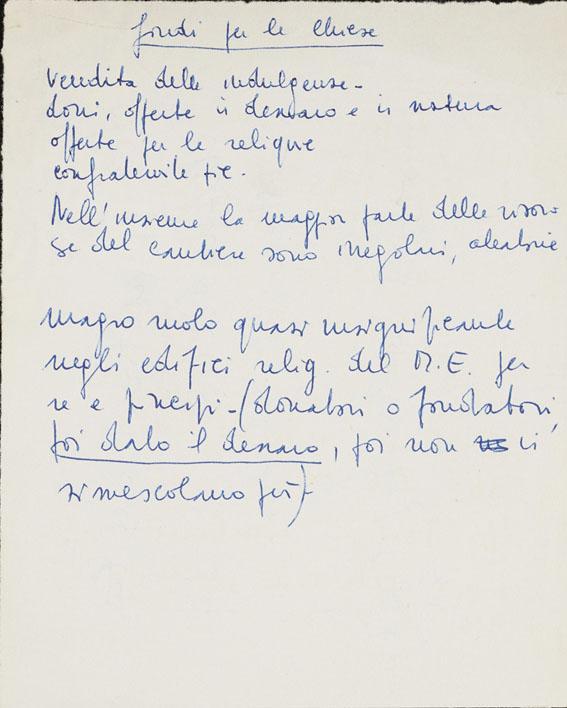 fondi per le chiese
vendita delle indulgenze -
doni, offerte in denaro e in natura
offerte per le reliquie
confraternite pie.
Nell'insieme la maggior parte delle risor
se del cantiere sono irregolari, aleatorie
magro ruolo quasi insignificante
negli edifici relig. del M.E. per
re e principi - (donatori o fondatori,
poi dato il denaro, poi non ci
si mescolano più) -